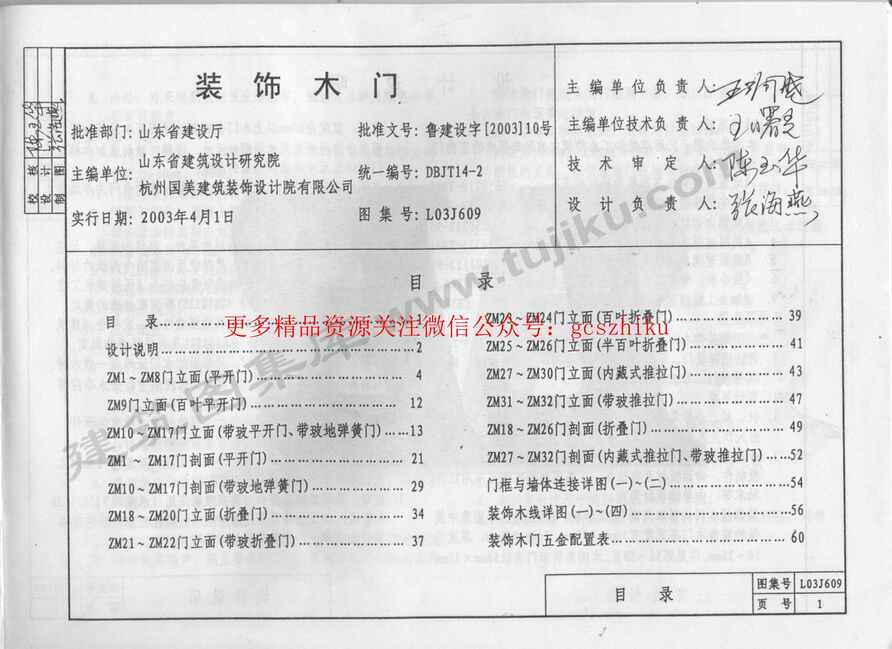 装饰木门
批准部门: 山东省建设厅
批准文号: 鲁建设字[2003]10号
主编单位: 山东省建筑设计研究院
杭州国美建筑装饰设计院有限公司
统一编号: DBJT14-2
实行日期: 2003年4月1日
图集号: L03J609
主编单位负责人:
主编单位技术负责人:
技术审定人: 陈玉华
设计负责人: 张海燕
校核
设计
制图
目 录
目 录……1
设计说明……2
ZM1~ZM8门立面(平开门)……4
ZM9门立面(百叶平开门)……12
ZM10~ZM17门立面(带玻平开门、带玻地弹簧门)……13
ZM1~ZM17门剖面(平开门)……21
ZM10~ZM17门剖面(带玻地弹簧门)……29
ZM18~ZM20门立面(折叠门)……34
ZM21~ZM22门立面(带玻折叠门)……37
ZM23~ZM24门立面(百叶折叠门)……39
ZM25~ZM26门立面(半百叶折叠门)……41
ZM27~ZM30门立面(内藏式推拉门)……43
ZM31~ZM32门立面(带玻推拉门)……47
ZM18~ZM26门剖面(折叠门)……49
ZM27~ZM32门剖面(内藏式推拉门、带玻推拉门)……52
门框与墙体连接详图(一)~(二)……54
装饰木线详图(一)~(四)……56
装饰木门五金配置表……60
更多精品资源关注微信公众号: gcszhiku
建筑图集库 www.tujiku.com
目 录
图集号 L03J609
页 号 1